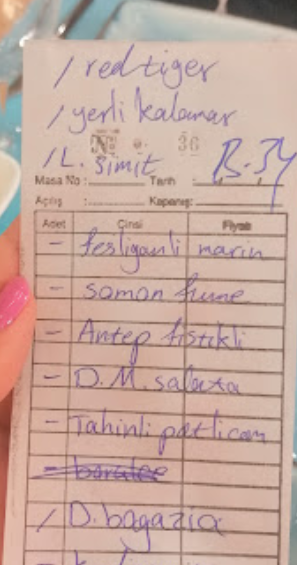 / red tiger
/ yerli kalamar
No 36
/ L. Simit B.34
Masa No : Tarih :
Açılış : Kapanış:
Adet Cinsi Fiyatı
- fesliganli marin
- somon fume
- Antep fistikli
- D.M. salata
- Tahinli patlican
/ D. bogazia